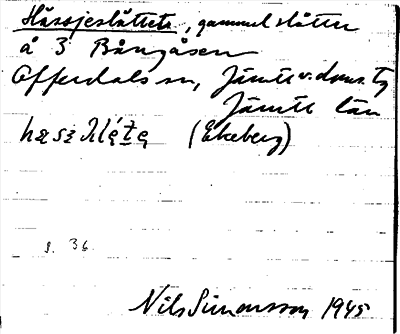 Häsojeslåttet, gammal slåtter
å 3 Bångåsen
Offerdals sn, Jämtl. v. doms. tg
Jämtl. län
(Ekeberg)
s. 36.
Nils Simonsson 1945